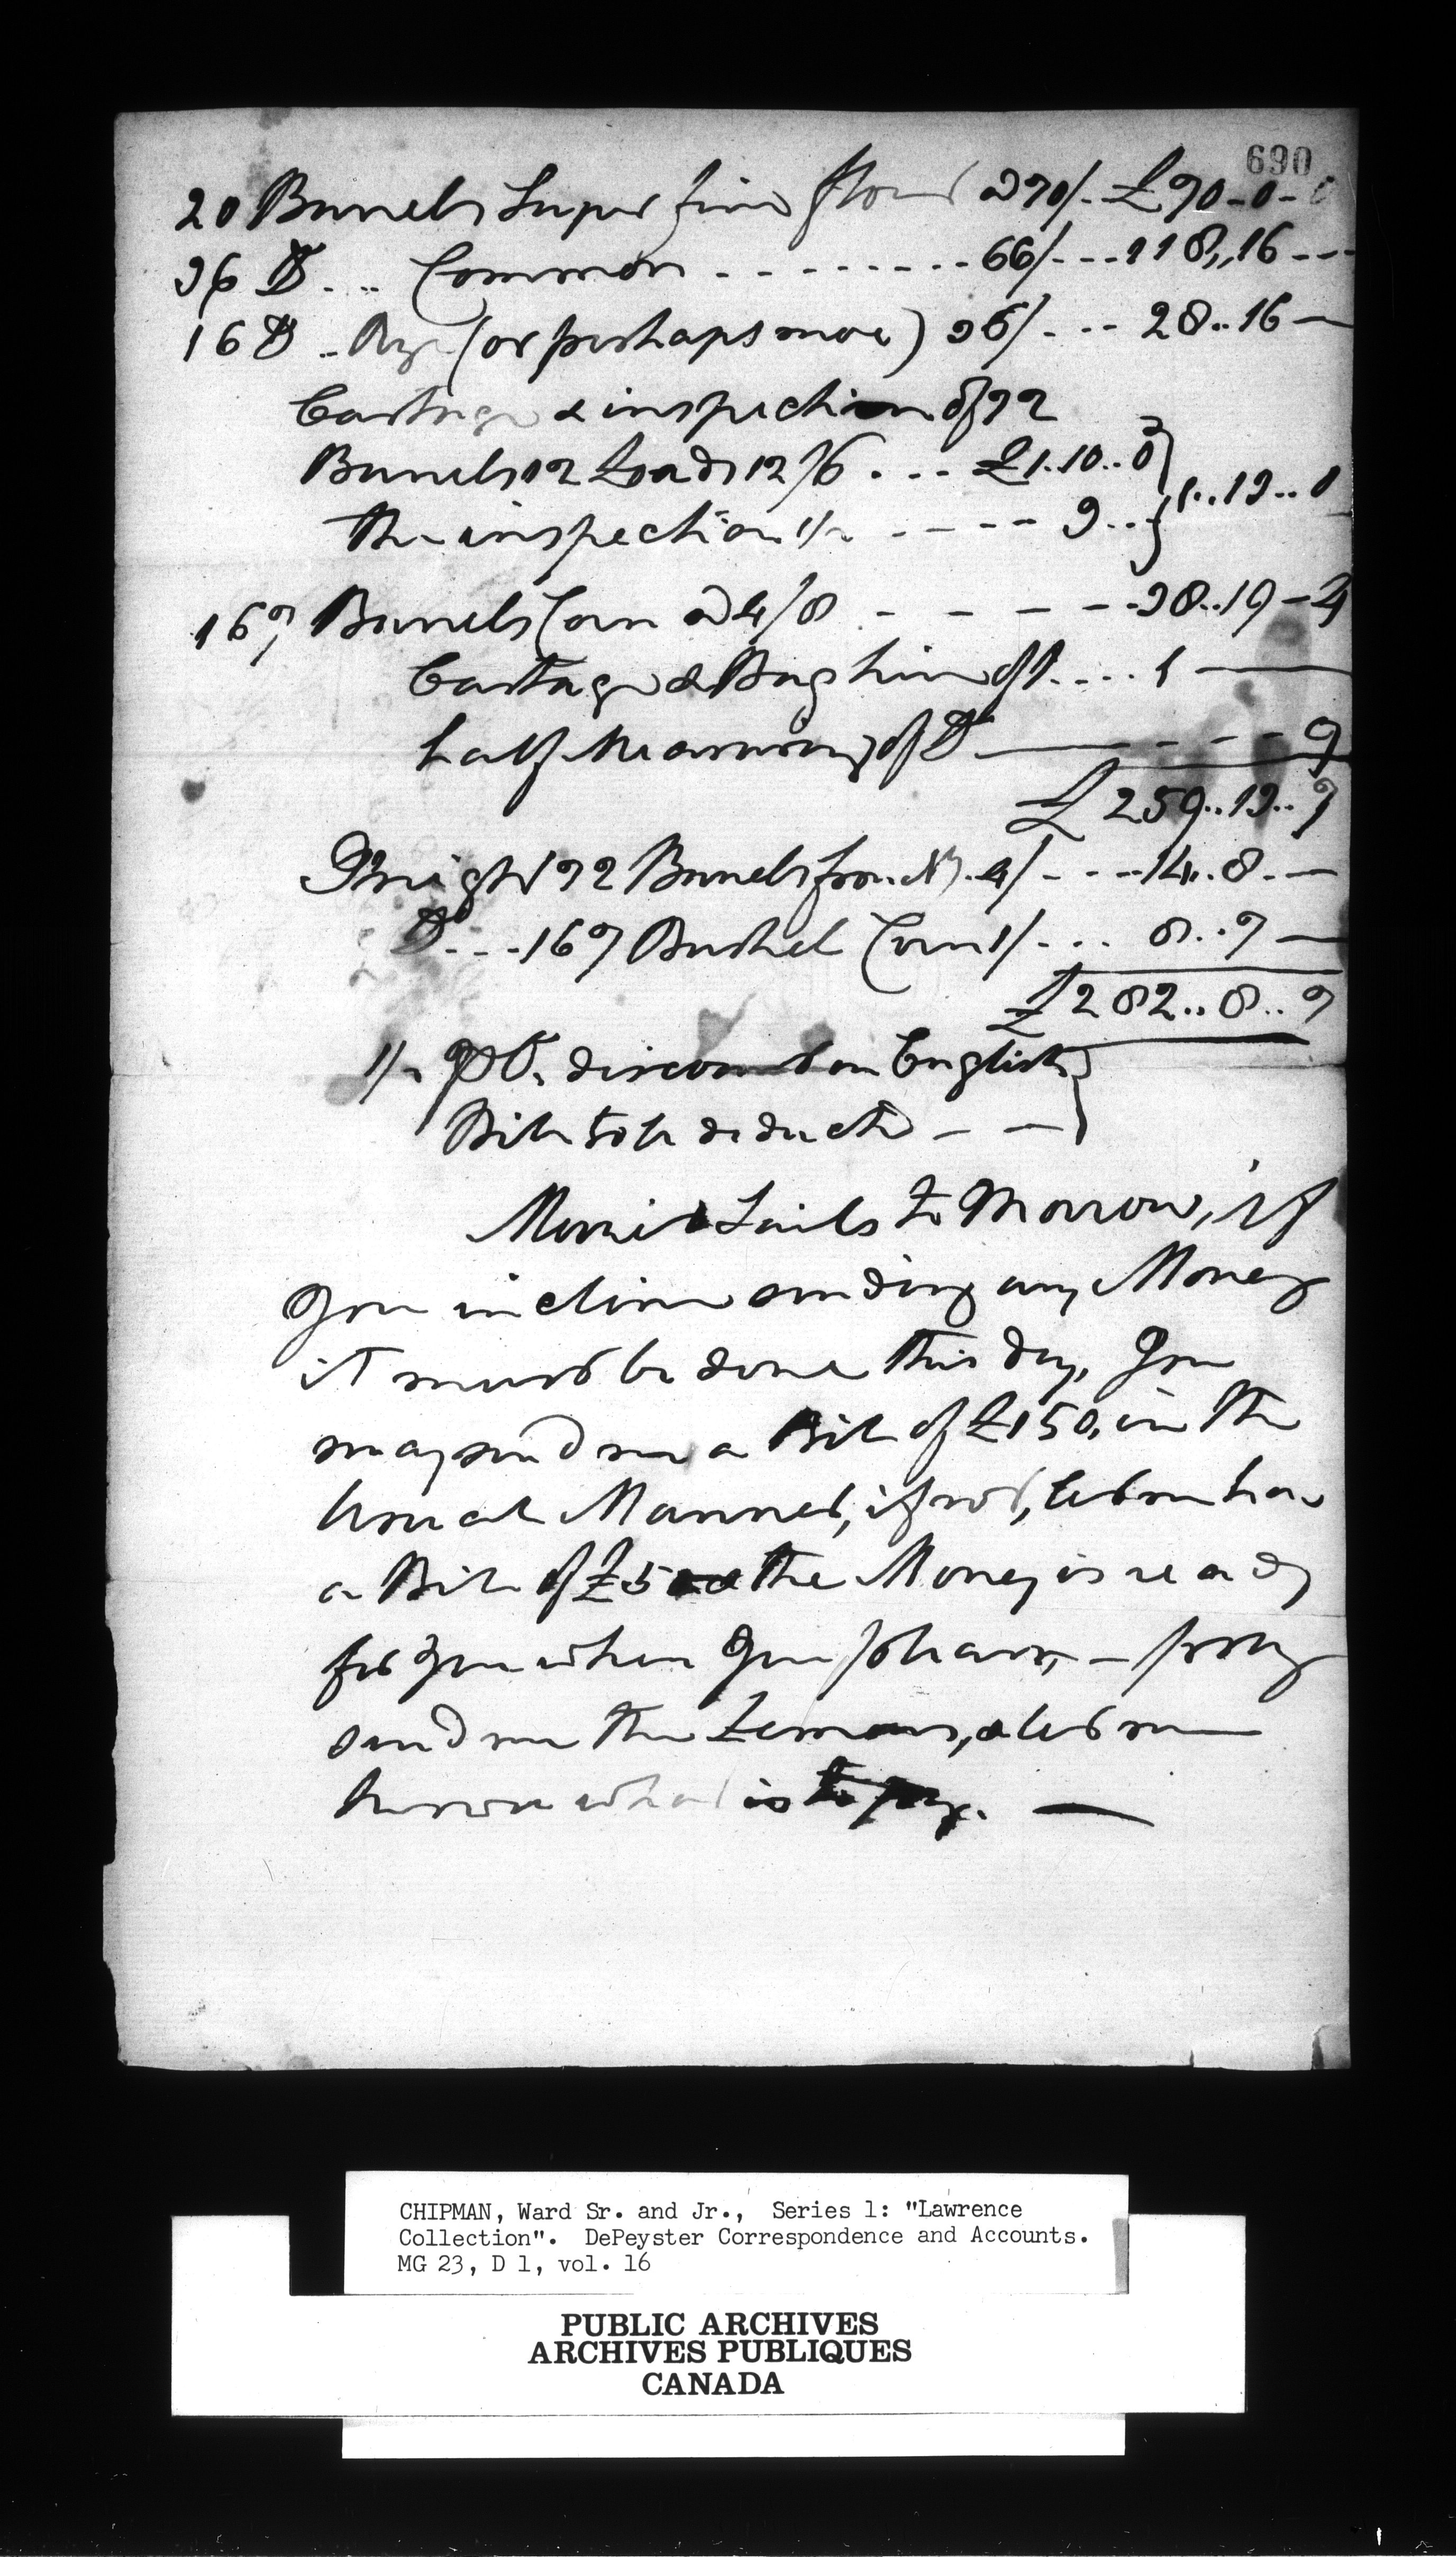 690
20 Barrels Super fine flour @ 70/- £70-0-0
36 Do .. Common - - - - - - - - - 66/- - - 118,,16 - - -
16 Do .. Rye (or perhaps more) 36/- - - 28..16 —
Cartage & inspection of 72
Barrels 12 Loads @ 2/6 . . . £1..10..0 } 1..13..0
the inspection 1/2 - - - - - 3.. }
167 Barrels Corn @ 4/8 - - - - - 38..19-4
Cartage & Bag hire of Do . . . . 1 —
half Measuring of Do — - - - 9
£259..13..7
Freight 72 Barrels from NY. 4/ - - - 14..8.. —
Do . . . 167 Bushel Corn 1/ - . . . 8..7 —
£282..8..7
1/2 PCt. discount on English }
Bill to be deducted — — }
Morris Sails to Morrow, if
you incline sending any Money
it must be done this day, you
may send me a Bill of £150, in the
usual Manner, if not, let me have
a Bill of £50 the Money is ready
for you when you please, — pray
send me the Lemons, & let me
know what is to pay. —
CHIPMAN, Ward Sr. and Jr., Series 1: "Lawrence
Collection". DePeyster Correspondence and Accounts.
MG 23, D 1, vol. 16
PUBLIC ARCHIVES
ARCHIVES PUBLIQUES
CANADA